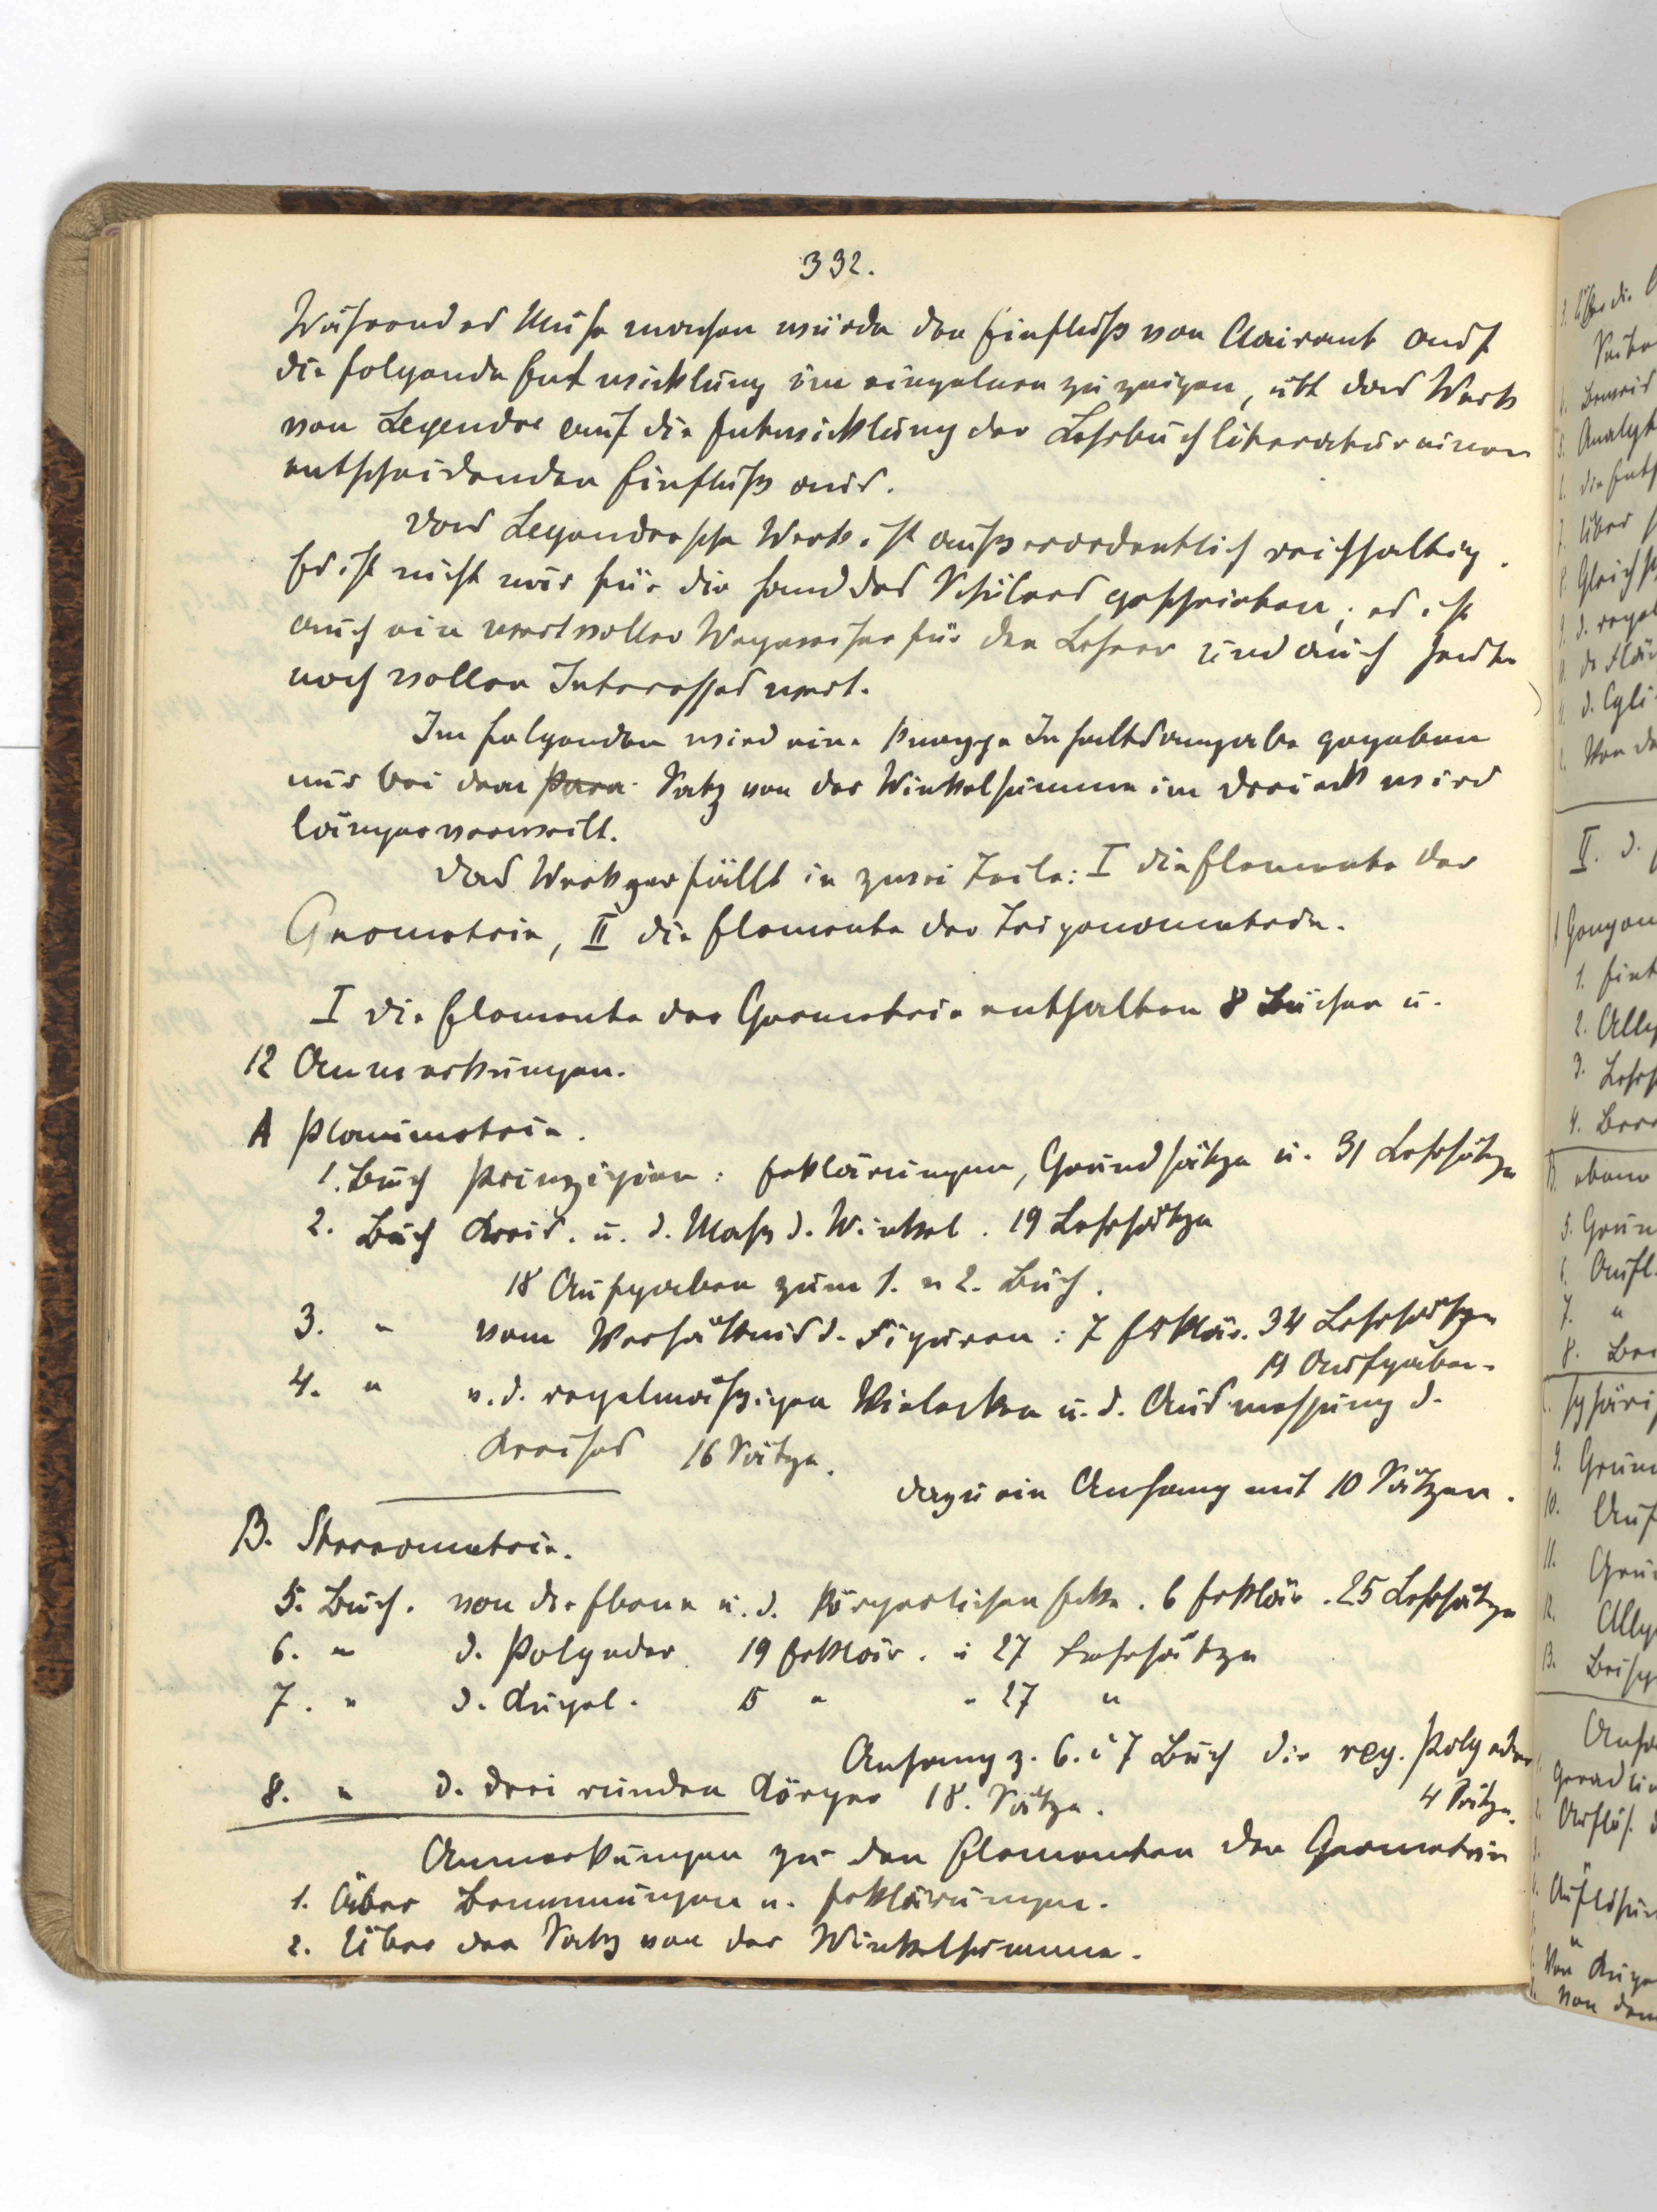 332.
Während es Mühe machen würde den Einfluß von Clairaut auf
die folgende Entwicklung im einzelnen zu zeigen, übt das Werk
von Legendre auf die Entwicklung der Lehrbuchliteratur einen
entscheidenden Einfluß aus.
Das Legendresche Werk ist außerordentlich reichhaltig.
Es ist nicht nur für die Hand des Schülers geschrieben, es ist
auch ein wertvoller Wegweiser für den Lehrer und auch heute
noch vollen Interesses wert.
Im folgenden wird eine knappe Inhaltsangabe gegeben
nur bei dem Para Satz von der Winkelsumme im Dreieck wird
länger verweilt.
Das Werk zerfällt in zwei Teile: I die Elemente der
Geometrie, II die Elemente der Trigonometrie.
I die Elemente der Geometrie enthalten 8 Bücher u.
12 Anmerkungen.
A Planimetrie.
1. Buch Prinzipien: Erklärungen, Grundsätze u. 31 Lehrsätze
2. Buch Kreis. u. d. Maß d. Winkel. 19 Lehrsätze
18 Aufgaben zum 1. u 2. Buch.
3. " vom Verhältnis d. Figuren: 7 Erklär. 34 Lehrsätze
Aufgaben.
4. " v. d. regelmäßigen Vielecken u. d. Ausmessung d.
Kreises 16 Sätze.
dazu ein Anhang mit 10 Sätzen.
B. Stereometrie.
5. Buch. von der Ebene u. d. körperlichen Ecke. 6 Erklär. 25 Lehrsätze
6. " d. Polyeder 19 Erklär. u 27 Lehrsätze
7. " d. Kugel. 15 " " 27 "
Anhang z. 6. u 7 Buch die reg. Polyeder
4 Sätze.
8. " d. drei runden Körper 18. Sätze.
Anmerkungen zu den Elementen der Geometrie
1. Über Benennungen u. Erklärungen.
2. Über den Satz von der Winkelsumme.